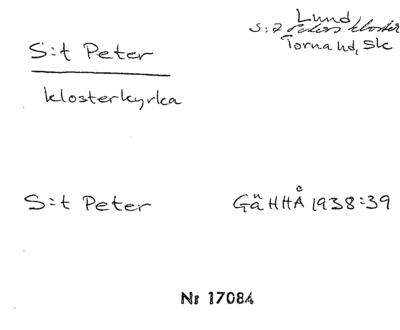 Lund
S:t Peters kloster
Torna hd, Sk
S:t Peter
klosterkyrka
S:t Peter GäHHÅ 1938:39
Nr 17084